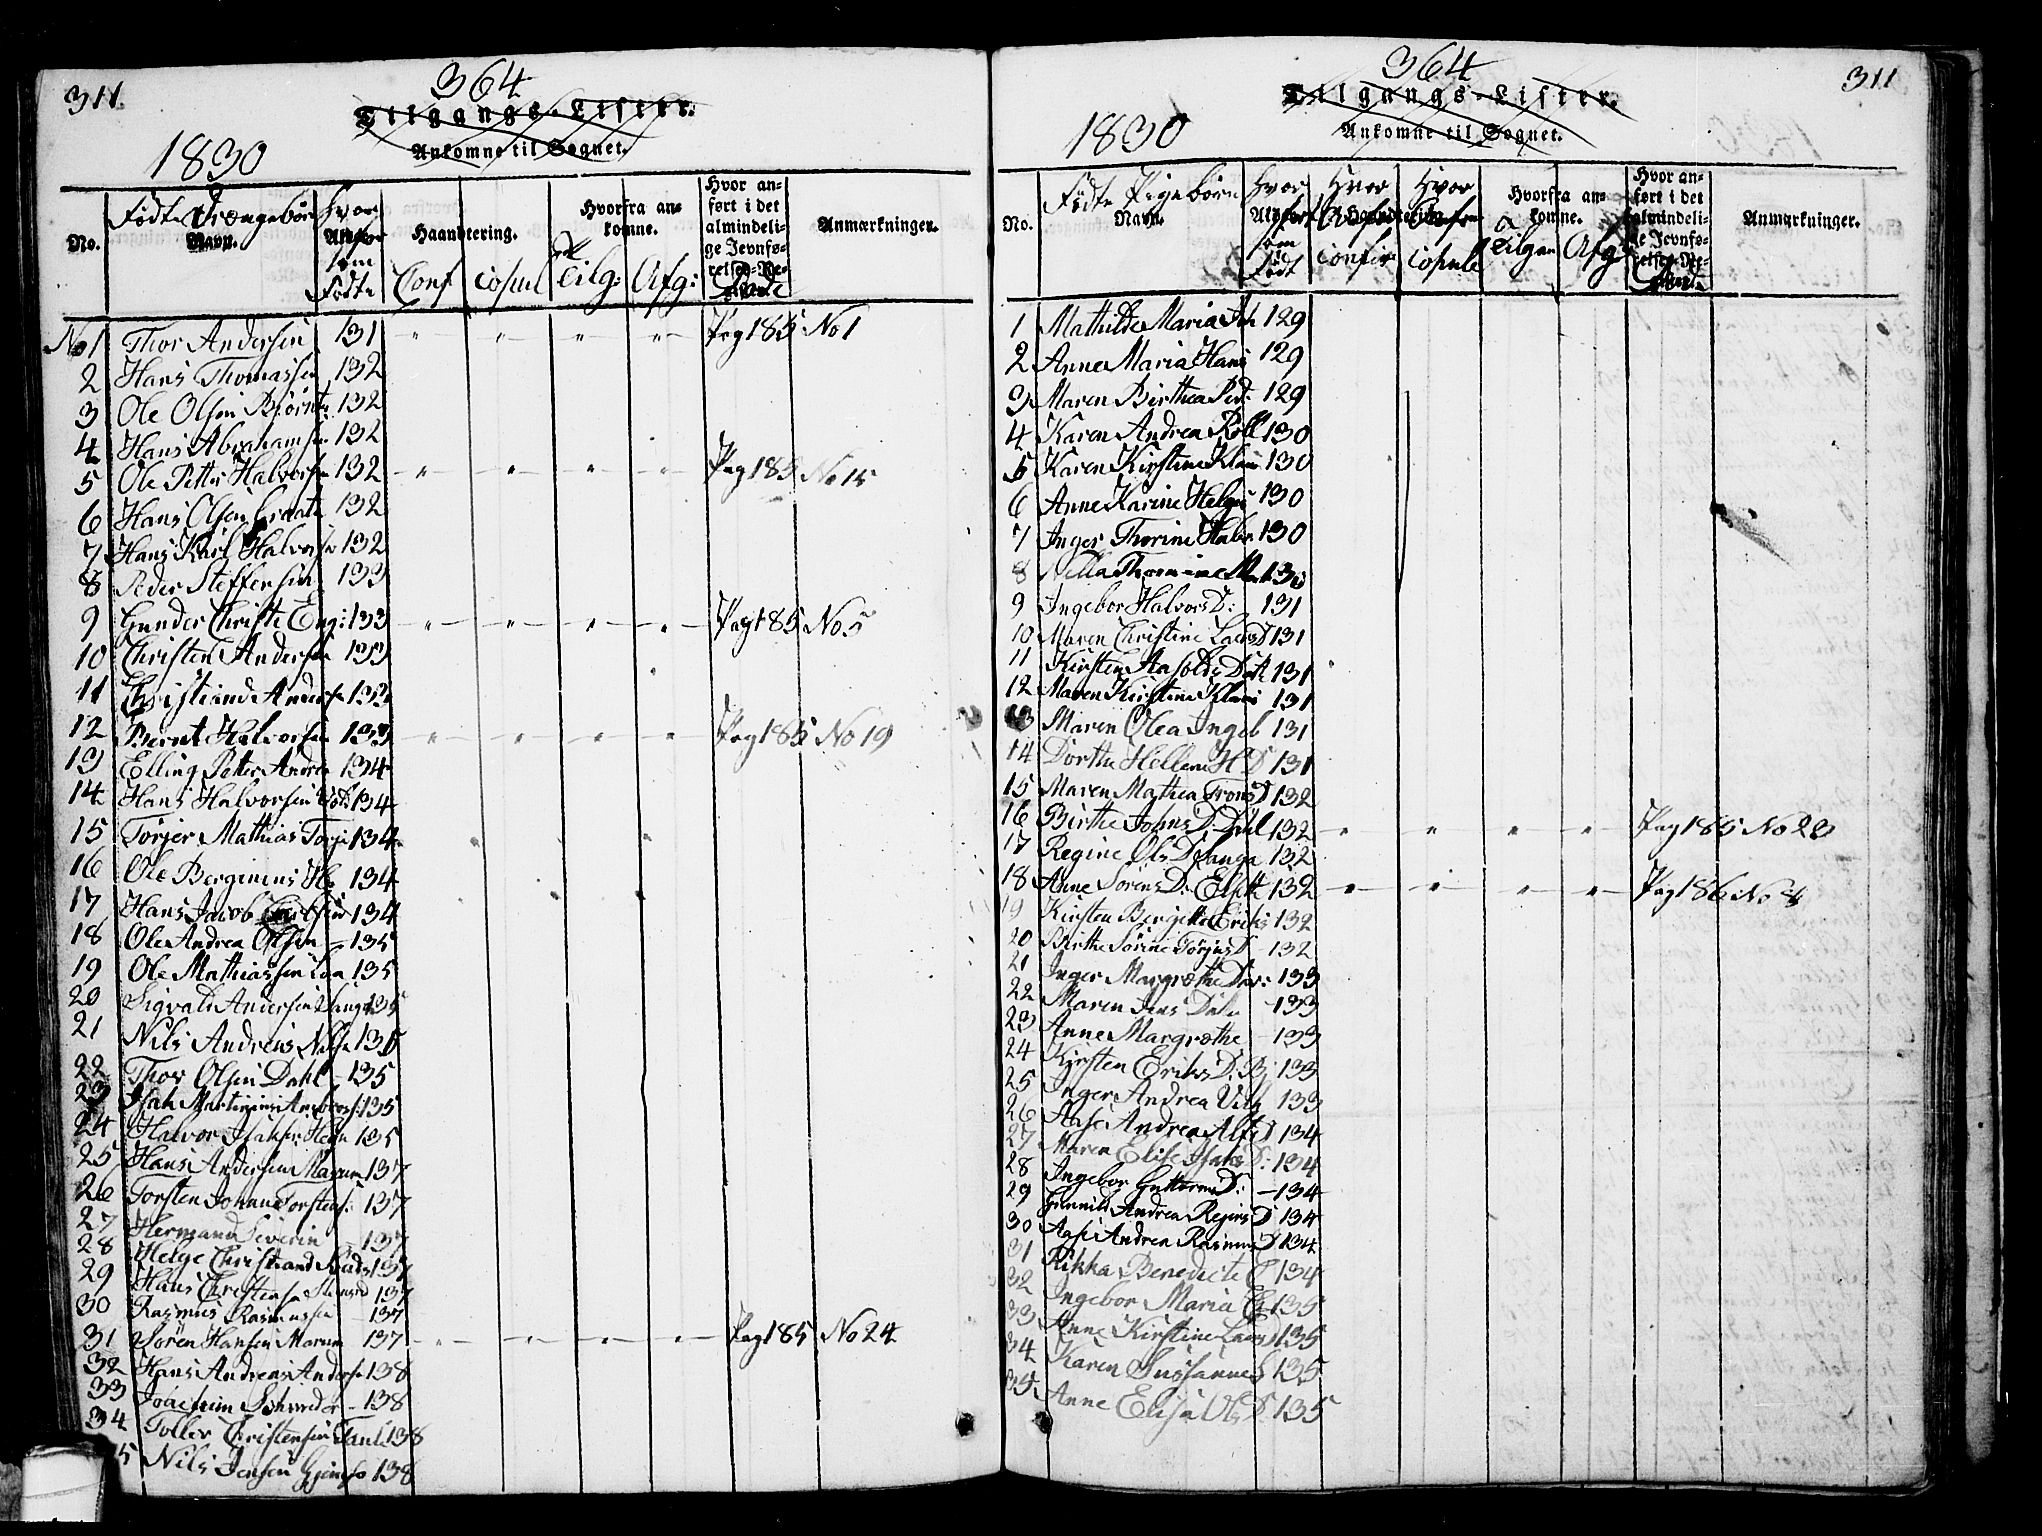 311.
364
Tilgangs-Lister.
Ankomne til Sognet.
1830
No.
Fødte Drængebørn
Navn.
Hvor
Anført
som
Fødte
Haandtering.
Conf
copul
Hvorfra ankomne.
Tilg:
Afg:
Hvor anført i det almindelige Jevnførelses-Register.
Døde
Anmærkninger.
No 1 Thor Andersen 131 " " " " Pag 185 No 1
2 Hans Thomassen 132
3 Ole Olsen 132
4 Hans Abrahams 132
5 Ole Petter Halvorsen 132 " " " " Pag 185 No 15
6 Hans Olsen 132
7 Hans Karl Halvorse 132
8 Peder Steffensen 133
9 Gunder Christe Eng: 133 " " " " Pag 185 No 5
10 Christen Andersen 133
11 Christiand Anders 133
12 Bernt Halvorsen 133 " " " " Pag 185 No 19
13 Elling Petter Andr 134
14 Hans Halvorsen 134
15 Torjer Mathias Torj: 134
16 Ole Berginius 134
17 Hans Jacob 134
18 Ole Andrea Olsen 135
19 Ole Mathiassen 135
20 Sigvald Andersen 135
21 Nils Andreas Nils 135
22 Thor Olsen Dahl 135
23 Isak Martinius 135
24 Halvor Isaksen 135
25 Hans Andersen Marum 137
26 Torsten Johan Torstens: 137
27 Hermand Severin 137
28 Helge Christiand 137
29 Hans Christensen 137
30 Rasmus Rasmussen 137
31 Sören Hansen Marum 137 " " " " Pag 185 No 24
32 Hans Andreas Anders 138
33 Joachim Schrøder 138
34 Tollev Christensen 138
35 Nils Jensen 138
364
311
Tilgangs-Lister.
Ankomne til Sognet.
1830
No.
Fødte Pigebørn
Navn.
Hvor
Anført
som
Født
Hvor
Anført
confir
Hvor
Anført
copule
Haandtering.
Hvorfra ankomne.
Tilgan
Afg
Hvor anført i det almindelige Jevnførelses-Register.
Anmærkninger.
1 Mathilde Maria 129
2 Anne Maria Hans 129
3 Maren Birthea Ped: 129
4 Karen Andrea 130
5 Karen Kirstine 130
6 Anne Karine Helge 130
7 Inger Thorine Halv 130
8 Nella Thomine 130
9 Ingebor Halvors D: 131
10 Maren Christine Lars D 131
11 Kirsten 131
12 Maren Kirstine 131
13 Maren Olea Ingeb 131
14 Dorthe Hellene H D 131
15 Maren Mathea Trons D 132
16 Birthe Johns D: Dahl 132 " " " " Pag 185 No 23
17 Regine Ols D Sanga 132
18 Anne Sörens D: 132 " " " " Pag 186 No 8
19 Kirsten Bergitte Eriks: 132
20 Birthe Sörine Torjus D 132
21 Inger Margrethe Dav: 133
22 Maren Jens Dale 133
23 Anne Margrethe 133
24 Kirsten Eriks D: 133
25 Inger Andrea 133
26 Aase Andrea Alf D 134
27 Maren Elise Isaks D: 134
28 Ingebor Guttorms D: 134
29 Gunnild Andrea Reiers D 134
30 Aase Andrea Rasmus D 134
31 Rikka Benedicte 134
32 Ingebor Maria 135
33 Anne Kirstine Lars D 135
34 Karen Susanne 135
35 Anne Elisa Ols D 135